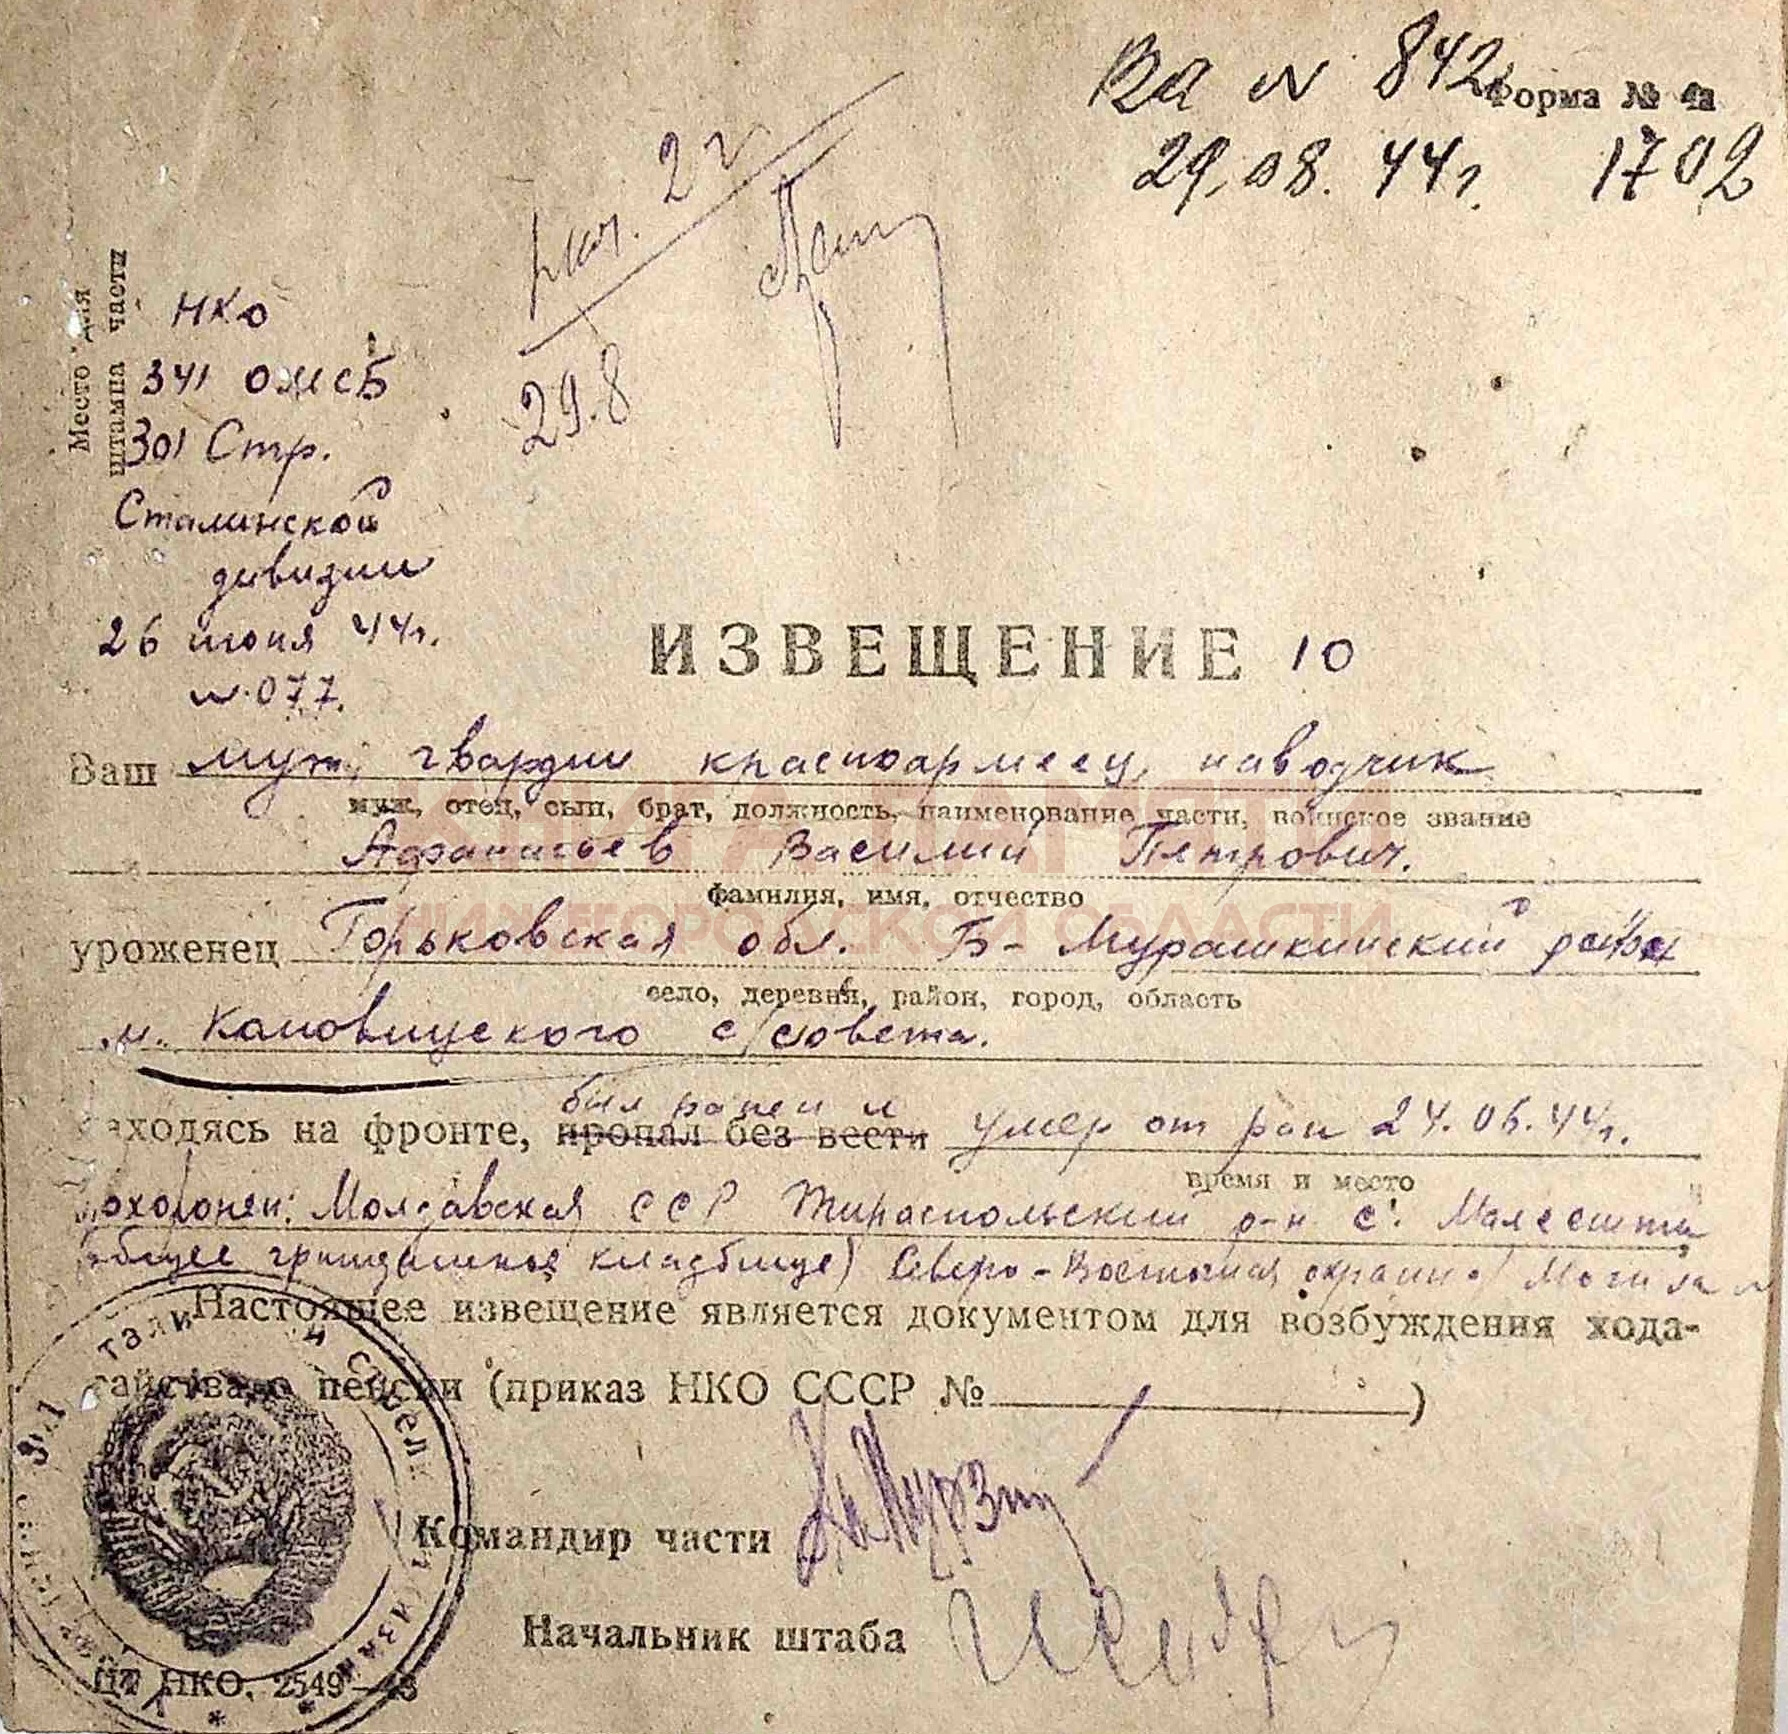 Ва N 842 Форма № 4а
29.08.44г. 1702
2 г
29.8
Место для
штампа части
НКО
341 ОЖСБ
301 Стр.
Сталинской
дивизии
26 июня 44г.
N.077.
ИЗВЕЩЕНИЕ 10
Ваш муж, гвардии красноармеец, наводчик
муж, отец, сын, брат, должность, наименование части, воинское звание
Афанасьев Василий Петрович.
фамилия, имя, отчество
КНИГА ПАМЯТИ
НИЖЕГОРОДСКОЙ ОБЛАСТИ
уроженец Горьковская обл. Б-Мурашкинский район
село, деревня, район, город, область
с/совета.
находясь на фронте, пропал без вести был ранен и умер от ран 24.06.44г.
время и место
похоронен: Молдавская ССР Тираспольский р-н с. Малеешты
(общее гражданское кладбище) Северо-Восточная окраина Могила
Настоящее извещение является документом для возбуждения хода-
тайства о пенсии (приказ НКО СССР № )
Командир части
Начальник штаба
ЦТ НКО. 2549—43
301 Сталин стрелк дивизи